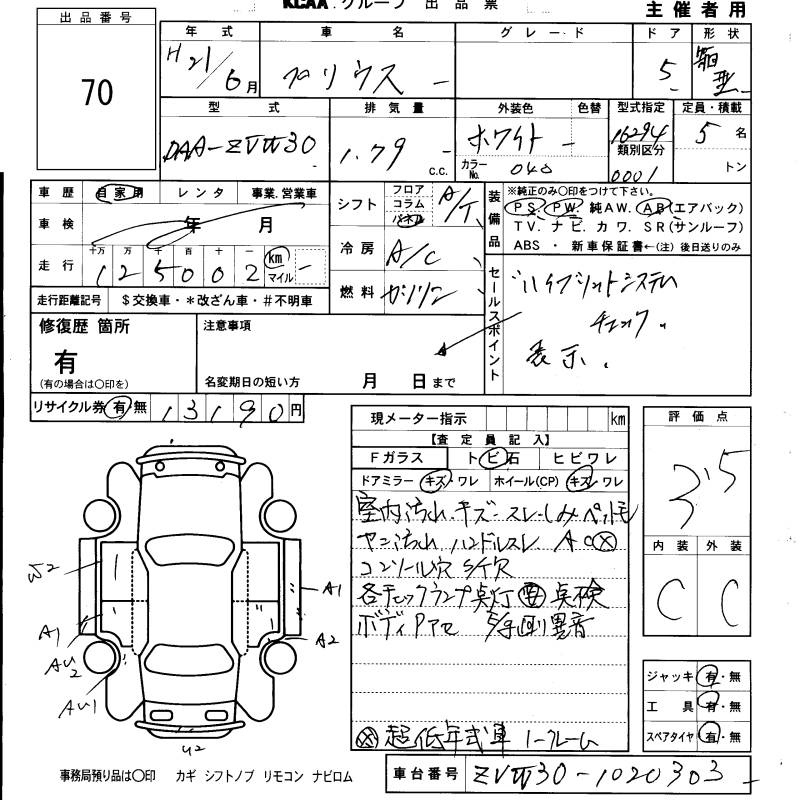 KCAA.グループ 出品票
主催者用
出品番号
70
年式 車名 グレード ドア 形状
H21/6月 プリウス 5 箱型
型式 排気量 外装色 色替 型式指定 定員・積載
DAA-ZVW30 1.79 c.c. ホワイト 16294 5名
カラーNo. 040 類別区分 0001 トン
車歴 自家用 レンタ 事業.営業車
車検 年 月
走行 十万 万 千 百 十 一 km マイル
125002
シフト フロア コラム パネル A/T
冷房 A/C
燃料 ガソリン
装備品 ※純正のみ〇印をつけて下さい。
PS. PW. 純AW. AB(エアバック)
TV. ナビ. カワ. SR(サンルーフ)
ABS ・ 新車保証書←(注)後日送りのみ
走行距離記号 $交換車・*改ざん車・#不明車
セールスポイント
ハイブリットシステム
チェック
表示.
修復歴 箇所
有
(有の場合は〇印を)
注意事項
名変期日の短い方 月 日まで
リサイクル券 有・無 13190円
現メーター指示 km
【査定員記入】
Fガラス トビ石 ヒビワレ
ドアミラー キズ・ワレ ホイール(CP) キズ・ワレ
室内汚れ.キズ.スレ.しみ.ペット毛
ヤニ汚れ ハンドルスレ A C⊗
コンソール穴 S/T穴
各チェックランプ点灯 要 点検
ボディPアセ 異音
⊗超低年式車 1-クレーム
評価点
3.5
内装 外装
C C
ジャッキ 有・無
工具 有・無
スペアタイヤ 有・無
W2
A1
A1
A2
AU2
AU1
U2
事務局預り品は〇印 カギ シフトノブ リモコン ナビロム
車台番号 ZVW30-1020303